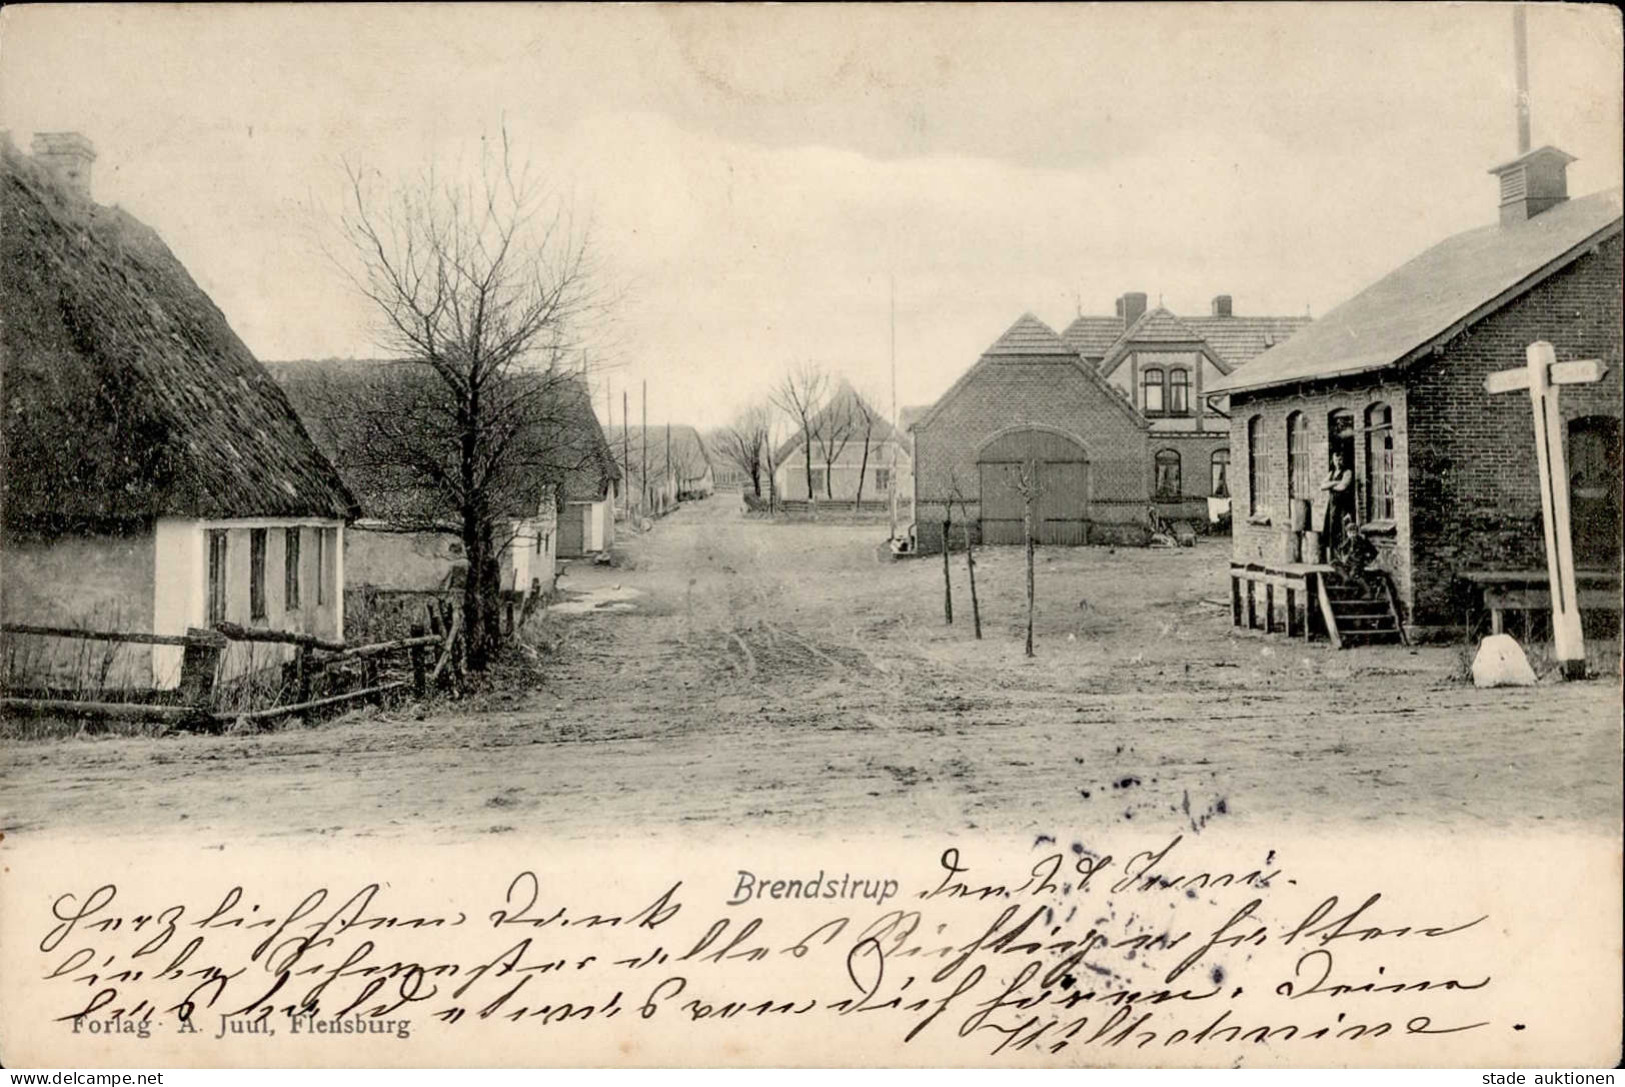 Brendstrup den 2d. Juni.
Herzlichsten Dank
liebe Schwester alles Richtig erhalten
las bald etwas von dich hören. Deine
Forlag A. Juul, Flensburg
Wilhelmine.
www.delcampe.net
stade auktionen